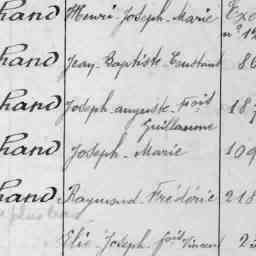 hand Henri Joseph Marie Exe
n° 12
hand Jean Baptiste Constant 86
hand Joseph Auguste 187
Guillaume
hand Joseph Marie 109
hand Raymond Frédéric 218
plus bas
Elie Joseph Vincent 23